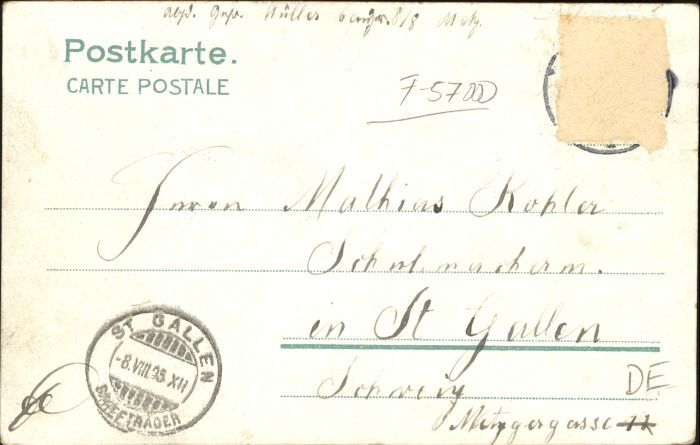 Müller
Metz.
Postkarte.
CARTE POSTALE
F-57000
Herrn Mathias Kohler
Schuhmacherm.
in St Gallen
Schweiz
DE
Metzgergasse 11
ST GALLEN
-8.VIII.05.XII
BRIEFTRÄGER